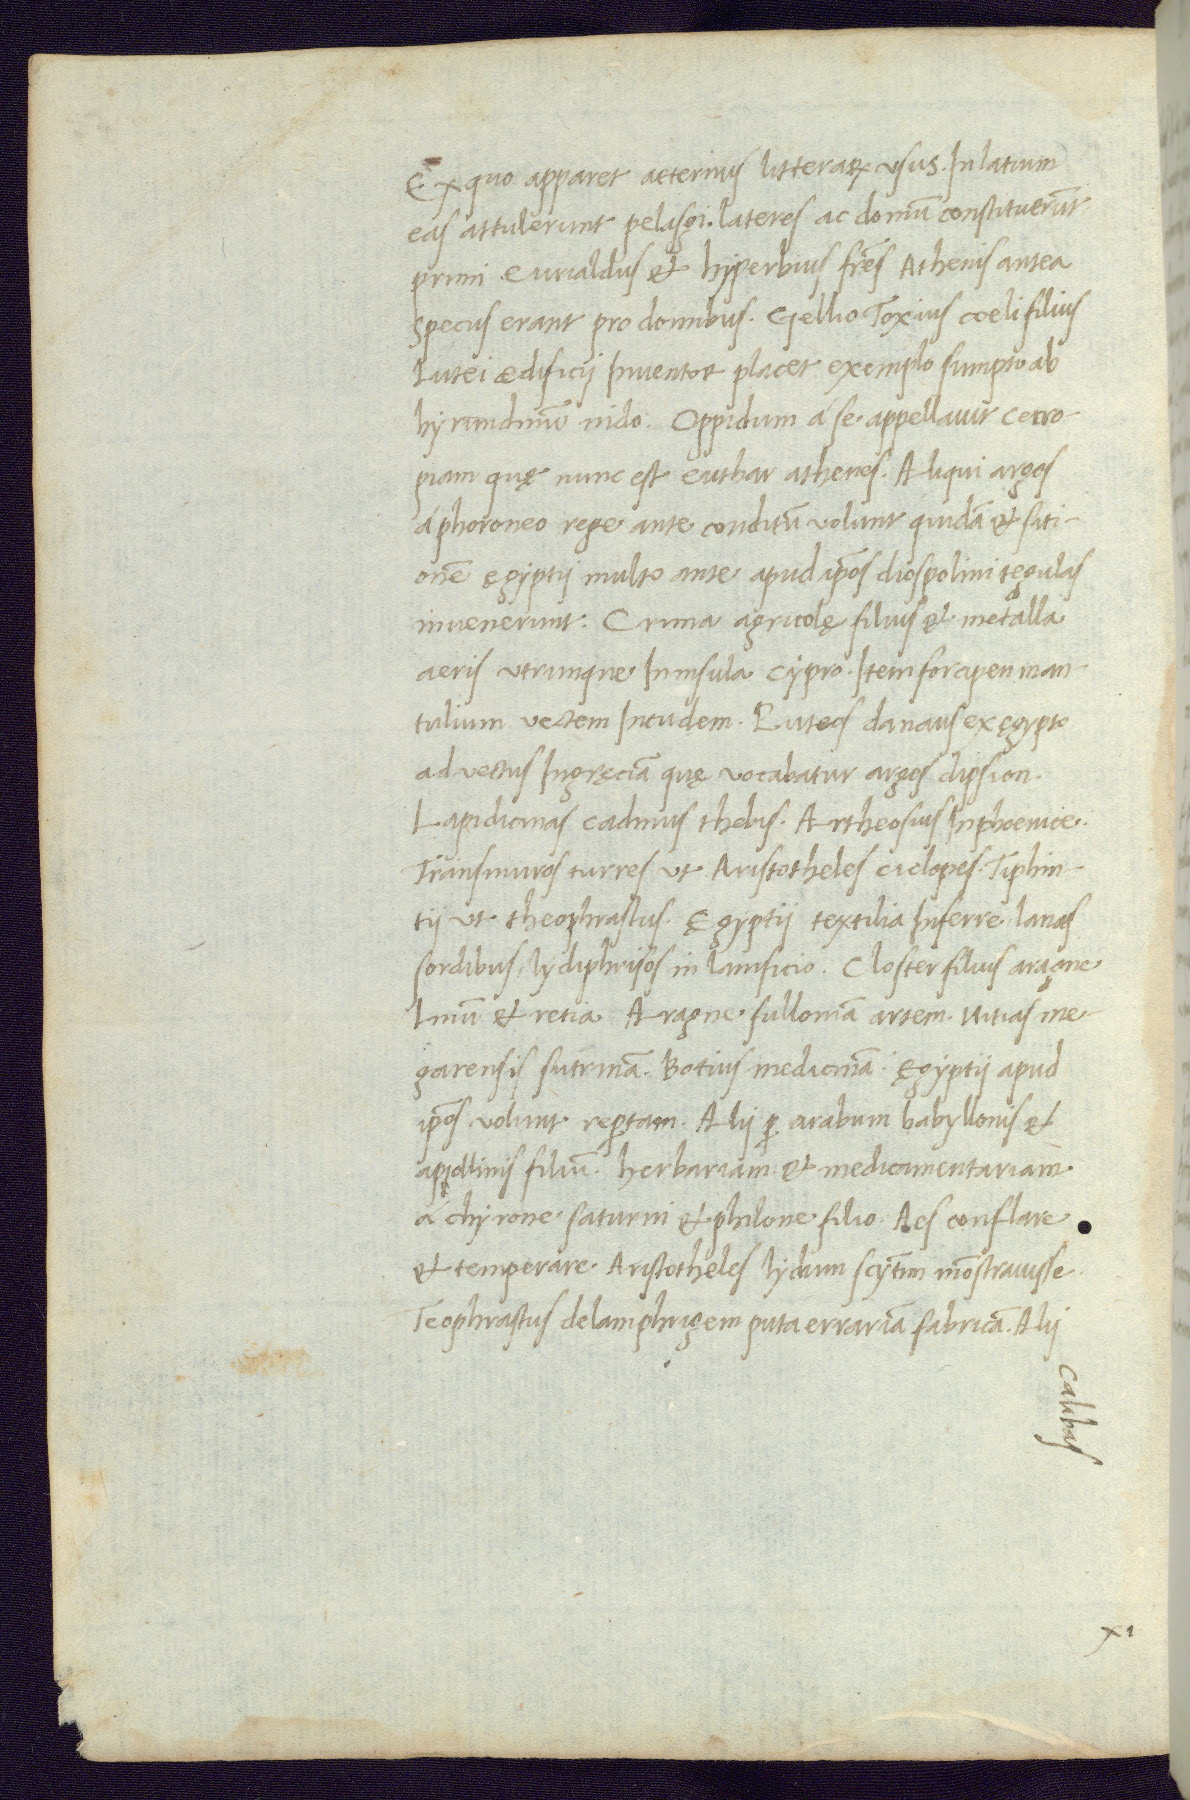 Ex quo apparet aeternus litterarꝝ vsus. In latium
eas attulerunt pelasgi. lateres ac domū constituerūt
primi Eurialdus et hyperbius fr̄es Athenis antea
specus erant pro domibus. Gellio Toxius coeli filius
Lutei ædificij Inuentor placet exemplo sumpto ab
hyrundinū nido. Oppidum á se appellauit Cecro-
piam quę nunc est athenes. Aliqui argos
á phoroneo rege ante conditū volunt quidā et siti-
onē ęgyptij multo ante apud ip̄os diospolin tegulas
inuenerunt: Crinna agricolę filius et metalla
aeris vtrunque In insula Cypro. Item forcipen man-
tulium vectem Incudem. Puteos danaus ex ęgypto
ad vectus In gręciā quę vocabatur argos dipsion.
Lapidicinas Cadmus thebis. Artheosius In phoenice.
Trāsmuros turres vt Aristotheles ciclopes. Tiphin-
tij vt theophrastus. Ęgyptij textilia Inferre lanas
sordibus, lydiphrisos in lanificio. Closter filius aragne
linū et retia Aragne fulloniā artem. Nitias me-
garensis sutrinā. Botius medicinā. Ęgyptij apud
ip̄os volunt rep̄tam. Alij ꝑ arabum babyllonis et
apollinis filiū. herbariam et medicamentariam
á chyrone saturni et philone filio. Aes conflare
et temperare Aristotheles lydum scytm̄ mōstrauisse
Teophrastus delamphrigem puta errariā fabricā. Alij
Calibas
XI